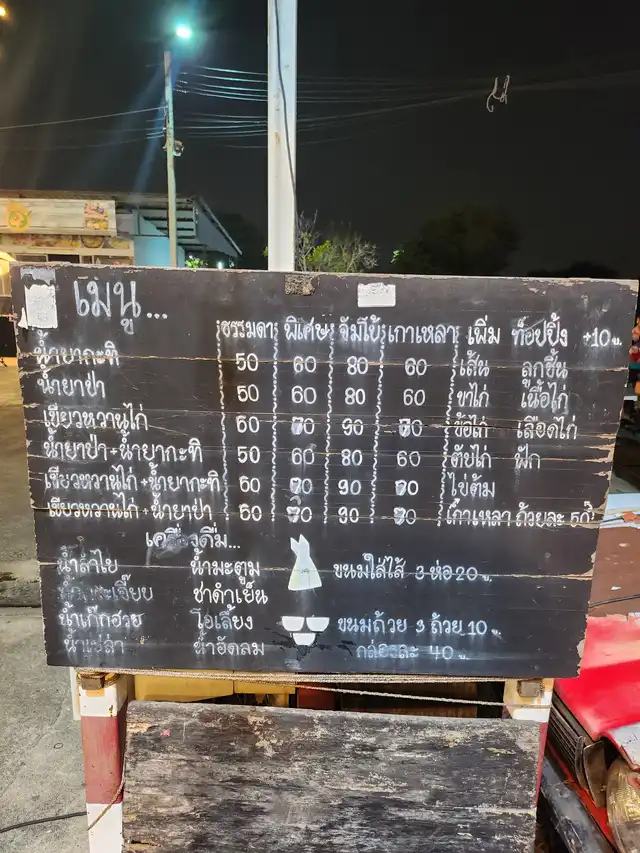 เมนู...
ธรรมดา พิเศษ จัมโบ้ เกาเหลา เพิ่ม ท็อปปิ้ง +10 บ.
น้ำยากะทิ 50 60 80 60 เส้น ลูกชิ้น
น้ำยาป่า 50 60 80 60 ขาไก่ เนื้อไก่
เขียวหวานไก่ 60 70 90 70 ข้อไก่ เลือดไก่
น้ำยาป่า+น้ำยากะทิ 50 60 80 60 ตับไก่ ฟัก
เขียวหวานไก่+น้ำยากะทิ 60 70 90 70 ไข่ต้ม
เขียวหวานไก่+น้ำยาป่า 60 70 90 70 เกาเหลา ถ้วยละ 50
เครื่องดื่ม...
น้ำลำไย น้ำมะตูม ขนมใส่ไส้ 3 ห่อ 20 บ.
ชาดำเย็น
น้ำเก๊กฮวย โอเลี้ยง ขนมถ้วย 3 ถ้วย 10 บ.
น้ำเปล่า น้ำอัดลม กล่องละ 40 บ.